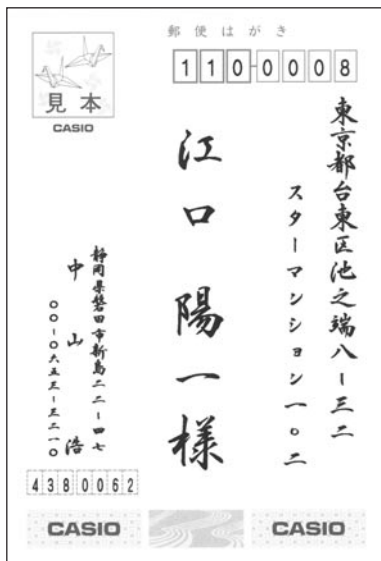 郵便はがき
110-0008
見本
CASIO
東京都台東区池之端八ー三二
スターマンション一〇二
江口陽一様
静岡県磐田市新島二二ー四七
中山浩
〇〇ー〇六五三ー三二一〇
4380062
CASIO
CASIO